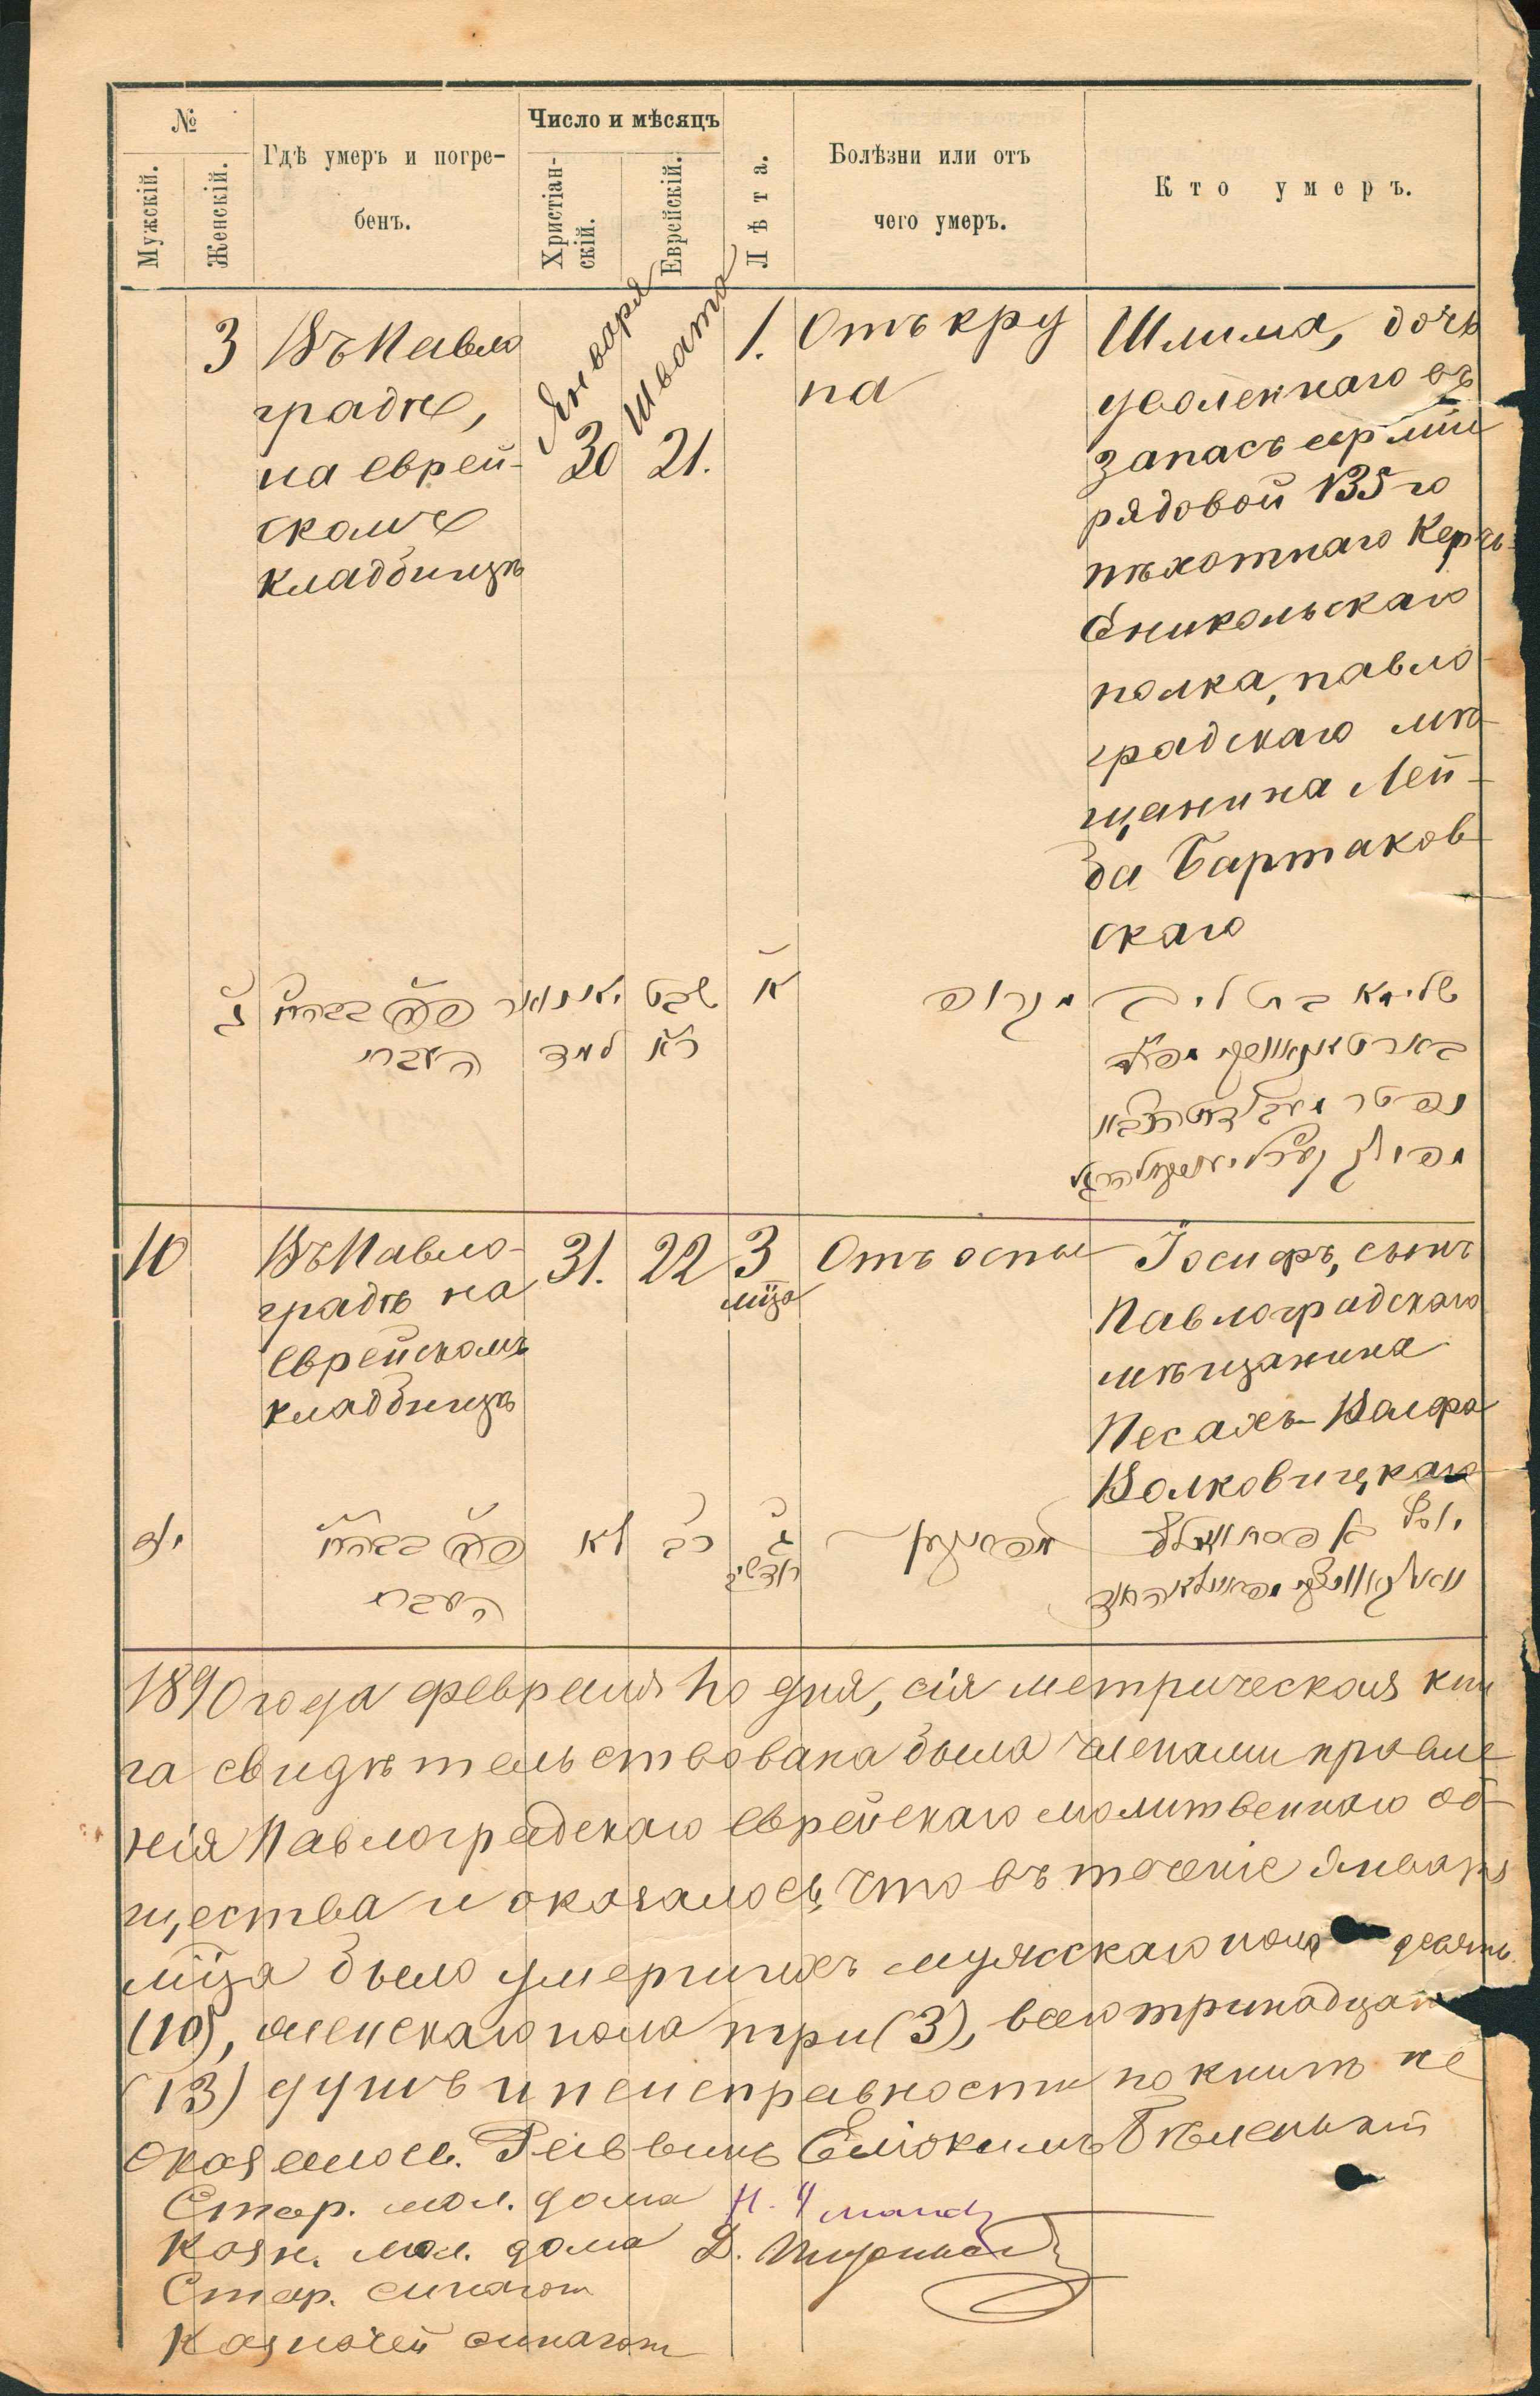 №
Мужскій.
Женскій.
Гдѣ умеръ и погре-
бенъ.
Число и мѣсяцъ
Христіан-
скій.
Еврейскій.
Лѣта.
Болѣзни или отъ
чего умеръ.
Кто умеръ.
3
Въ Павло
градѣ,
на еврей-
скомъ
кладбищѣ
Января
30
Швата
21.
1.
Отъ кру
па
Шлима, дочь
уволеннаго въ
запасъ арміи
рядовой 135го
пѣхотнаго Керчь-
Еникольскаго
полка, павло-
градскаго мѣ-
щанина Лей-
ба Бартаков
скаго
ג
העברי
יאנואר
למד
שבט
כא
א
10
Въ Павло-
градѣ на
еврейскомъ
кладбищѣ
31.
22
3
мца
Отъ оспы
Іосифъ, сынъ
Павлоградскаго
мѣщанина
Песахъ-Волфа
Волковицкаго
לא
כב
ג
העברי
1890 года февраля 10 дня, сія метрическая кни
га свидѣтельствована была членами правле
нія Павлоградскаго еврейскаго молитвеннаго об-
щества и оказалось, что въ теченіе Января
мца было умершихъ мужскаго пола десять
(10), женскаго пола три (3), всего тринадцать
(13) душъ и неисправности по книгѣ не
оказалось. Раввинъ Еліокимъ
Стар. мол. дома
Казн. мол. дома Д.
Стар. синагоги
Казначей синагоги